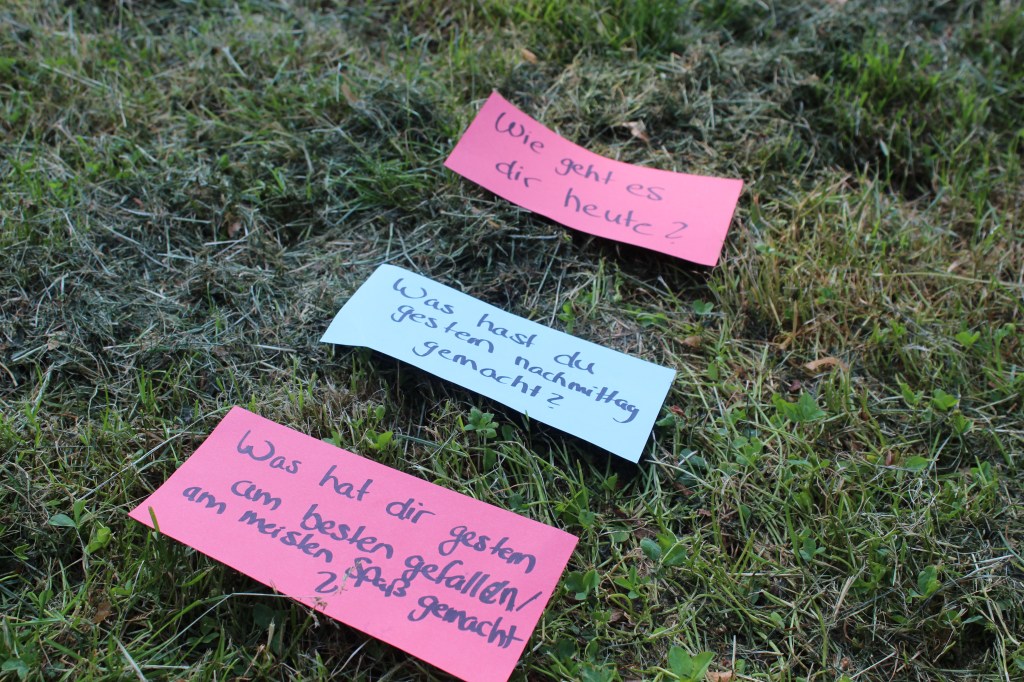 Wie geht es
dir heute?
Was hast du
gestern nachmittag
gemacht?
Was hat dir gestern
am besten gefallen/
am meisten Spaß gemacht
?